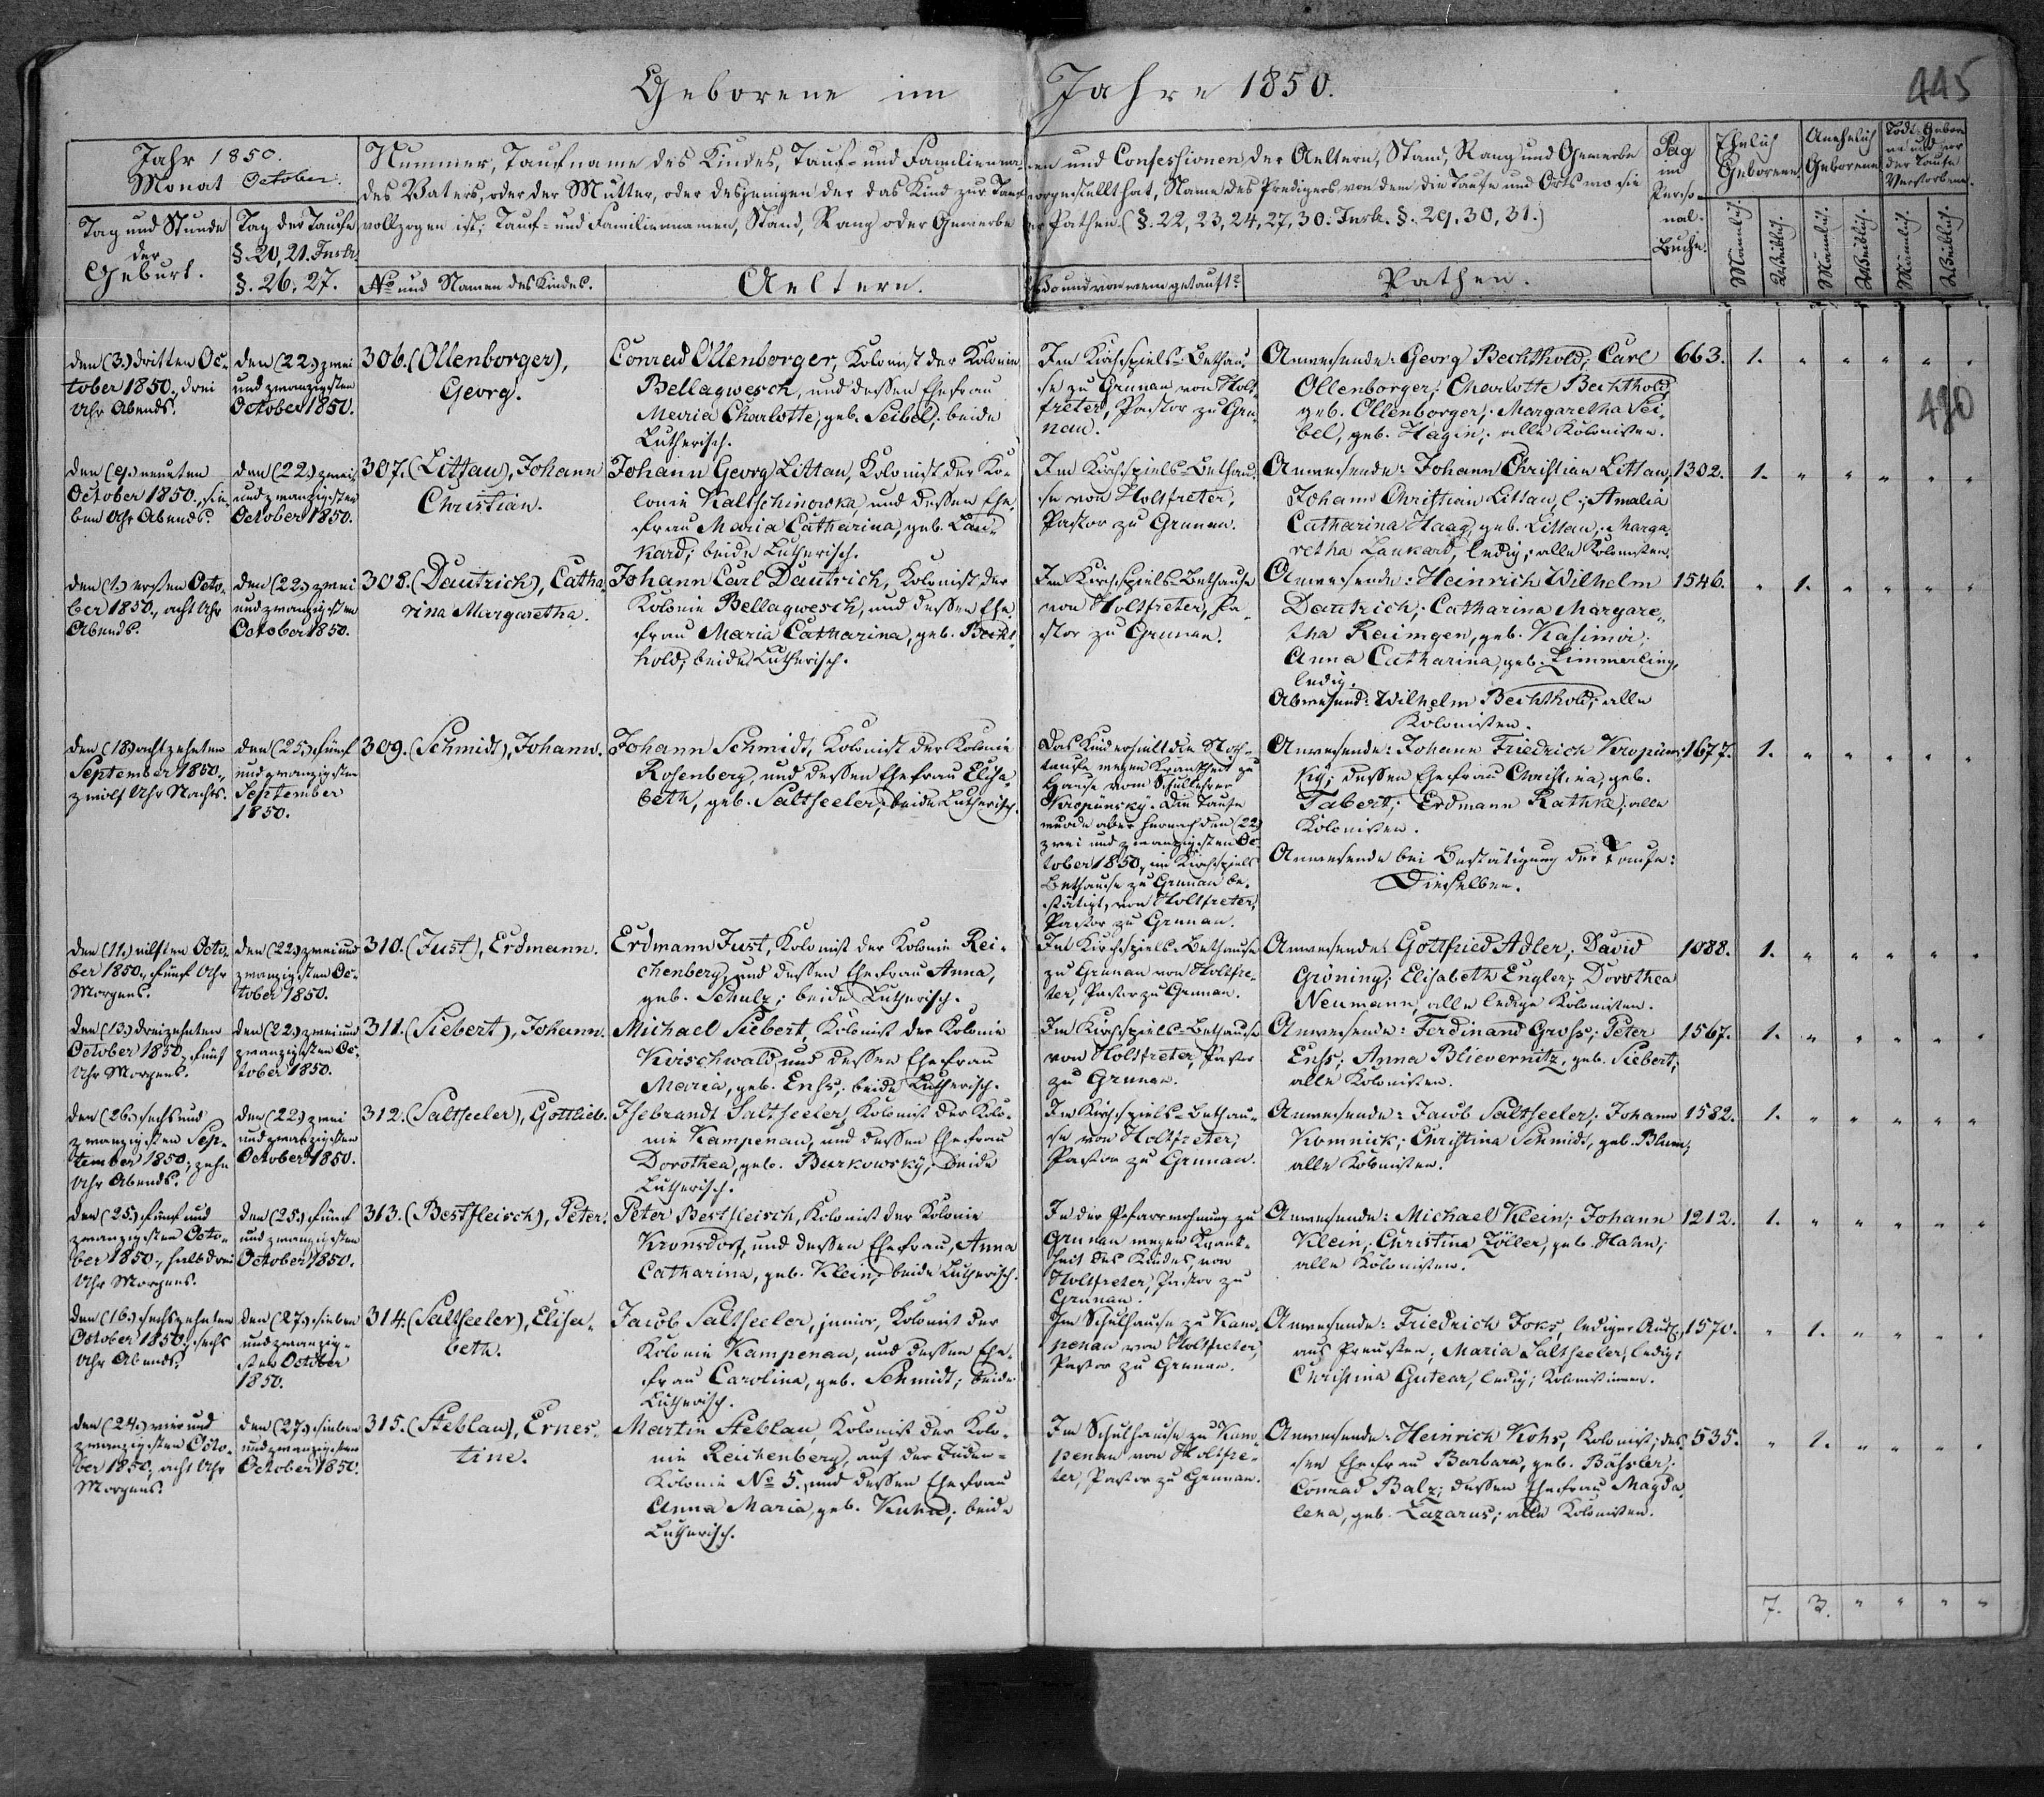 Geborene im Jahre 1850.
445
Jahr 1850.
Monat October.
Nummer, Taufname des Kindes, Tauf- und Familiennamen und Confessionen der Aeltern, Stand, Rang und Gewerbe
des Vaters, oder der Mutter, oder desjenigen der das Kind zur Taufe vorgestellt hat, Name des Predigers von dem die Taufe und Orts wo sie
vollzogen ist; Tauf- und Familiennamen, Stand, Rang oder Gewerbe der Pathen (§. 22, 23, 24, 27, 30. Instr. §. 29. 30, 31.)
Tag und Stunde
der
Geburt.
Tag der Taufe
§. 20, 21. Instr.
§. 26, 27.
No und Namen des Kindes.
Aeltern.
Wo und von wem getauft?
Pathen.
Pag
im
Perso-
nal-
Buche.
Ehelich
Geborene.
Unehelich
Geborene.
Todt-Gebore-
ne und vor
der Taufe
Verstorbene.
Männlich.
Weiblich.
Männlich.
Weiblich.
Männlich.
Weiblich.
den (3.) dritten Oc-
tober 1850., drei
Uhr Abends.
den (22.) zwei
und zwanzigsten
October 1850.
306. (Ollenborger),
Georg.
Conrad Ollenborger, Kolonist der Kolonie
Bellagwesch, und dessen Ehefrau
Maria Charlotte, geb. Seibel; beide
Lutherisch.
Im Kirchspiels-Bethau-
se zu Grunau von Holt-
freter, Pastor zu Gru-
nau.
Anwesende: Georg Bechthold; Carl
Ollenborger; Charlotte Bechthold,
geb. Ollenborger; Margaretha Sei-
bel, geb. Hagin; alle Kolonisten.
663. 1. " " " " "
480
den (9.) neunten
October 1850., sie-
ben Uhr Abends.
den (22.) zwei
und zwanzigsten
October 1850.
307. (Littau), Johann
Christian.
Johann Georg Littau, Kolonist der Ko-
lonie Kaltschinowka und dessen Ehe-
frau Maria Catharina, geb. Lau-
kard; beide Lutherisch.
Im Kirchspiels-Bethau-
se von Holtfreter,
Pastor zu Grunau.
Anwesende: Johann Christian Littau;
Johann Christian Littau, l.; Amalia
Catharina Haag, geb. Littau; Marga-
retha Laukard, ledig; alle Kolonisten.
1302. 1. " " " " "
den (1.) ersten Octo-
ber 1850., acht Uhr
Abends.
den (22.) zwei
und zwanzigsten
October 1850.
308. (Dautrich), Catha-
rina Margaretha.
Johann Carl Dautrich, Kolonist der
Kolonie Bellagwesch, und dessen Ehe-
frau Maria Catharina, geb. Becht-
hold; beide Lutherisch.
Im Kirchspiels-Bethause
von Holtfreter, Pa-
stor zu Grunau.
Anwesende: Heinrich Wilhelm
Dautrich; Catharina Margare-
tha Raimgen, geb. Kasimir;
Anna Catharina, geb. Zimmerling,
ledig.
Abwesend: Wilhelm Bechthold; alle
Kolonisten.
1546. " 1. " " " "
den (18.) achtzehnten
September 1850.,
zwölf Uhr Nachts.
den (25.) fünf
und zwanzigsten
September
1850.
309. (Schmidt), Johann.
Johann Schmidt, Kolonist der Kolonie
Rosenberg, und dessen Ehefrau Elisa-
beth, geb. Saltseeler; beide Lutherisch.
Das Kind erhielt die Noth-
taufe wegen Krankheit zu
Hause vom Schullehrer
Kropinsky. Die Taufe
wurde aber hernach den (22.)
zwei und zwanzigsten Oc-
tober 1850, im Kirchspiels
Bethause zu Grunau be-
stätigt, von Holtfreter,
Pastor zu Grunau.
Anwesende: Johann Friedrich Kropins-
ky; dessen Ehefrau Christina, geb.
Tabert; Erdmann Rathke; alle
Kolonisten.
Anwesende bei Bestätigung der Taufe:
Dieselben.
1677. 1. " " " " "
den (11.) eilften Octo-
ber 1850., fünf Uhr
Morgens.
den (22.) zwei und
zwanzigsten Oc-
tober 1850.
310. (Just), Erdmann.
Erdmann Just, Kolonist der Kolonie Rei-
chenberg, und dessen Ehefrau Anna,
geb. Schulz; beide Lutherisch.
Im Kirchspiels-Bethause
zu Grunau von Holtfre-
ter, Pastor zu Grunau.
Anwesende: Gottfried Adler; David
Gröning; Elisabeth Engler; Dorothea
Neumann, alle ledige Kolonisten.
1088. 1. " " " " "
den (13.) dreizehnten
October 1850, fünf
Uhr Morgens.
den (22.) zwei und
zwanzigsten Oc-
tober 1850.
311. (Siebert), Johann.
Michael Siebert, Kolonist der Kolonie
Kirschwald und dessen Ehefrau
Maria, geb. Enss; beide Lutherisch.
Im Kirchspiels-Bethause
von Holtfreter, Pastor
zu Grunau.
Anwesende: Ferdinand Gross; Peter
Enss; Anna Blievernitz, geb. Siebert;
alle Kolonisten.
1567. 1. " " " " "
den (26.) sechs und
zwanzigsten Sep-
tember 1850, zehn
Uhr Abends.
den (22.) zwei
und zwanzigsten
October 1850.
312. (Saltseeler), Gottlieb.
Isebrandt Saltseeler, Kolonist der Kolo-
nie Kampenau, und dessen Ehefrau
Dorothea, geb. Burkowsky; beide
Lutherisch.
Im Kirchspiels-Bethau-
se von Holtfreter,
Pastor zu Grunau.
Anwesende: Jacob Saltseeler; Johann
Komnick; Christina Schmidt, geb. Blum;
alle Kolonisten.
1582. 1. " " " " "
den (25.) fünf und
zwanzigsten Octo-
ber 1850., halb drei
Uhr Morgens.
den (25.) fünf
und zwanzigsten
October 1850.
313. (Bestfleisch), Peter.
Peter Bestfleisch, Kolonist der Kolonie
Kronsdorf, und dessen Ehefrau, Anna
Catharina, geb. Klein; beide Lutherisch.
In der Pfarrwohnung zu
Grunau wegen Krank-
heit des Kindes, von
Holtfreter, Pastor zu
Grunau.
Anwesende: Michael Klein; Johann
Klein; Christina Zöller, geb. Hahn;
alle Kolonisten.
1212. 1. " " " " "
den (16.) sechszehnten
October 1850; sechs
Uhr Abends.
den (27.) sieben
und zwanzig-
sten October
1850.
314. (Saltseeler), Elisa-
beth.
Jacob Saltseeler, junior, Kolonist der
Kolonie Kampenau, und dessen Ehe-
frau Carolina, geb. Schmidt; beide
Lutherisch.
Im Schulhause zu Kam-
penau von Holtfreter,
Pastor zu Grunau.
Anwesende: Friedrich Foks, lediger Ausl.
aus Preussen; Maria Saltseeler, ledig;
Christina Gutear, ledig; Kolonistinnen.
1570. " 1. " " " "
den (24.) vier und
zwanzigsten Octo-
ber 1850, acht Uhr
Morgens.
den (27.) sieben
und zwanzigsten
October 1850.
315. (Steblau), Ernes-
tine.
Martin Steblau, Kolonist der Kolo-
nie Reichenberg, auf der Juden-
Kolonie No 5., und dessen Ehefrau
Anna Maria, geb. Kuhn; beide
Lutherisch.
Im Schulhause zu Kam-
penau von Holtfre-
ter, Pastor zu Grunau.
Anwesende: Heinrich Kohs, Kolonist; des-
sen Ehefrau Barbara, geb. Bässler;
Conrad Balz; dessen Ehefrau Magda-
lena, geb. Lazarus; alle Kolonisten.
535. " 1. " " " "
7. 3. " " " "